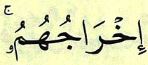 إِخْرَاجُهُمُۥۚ